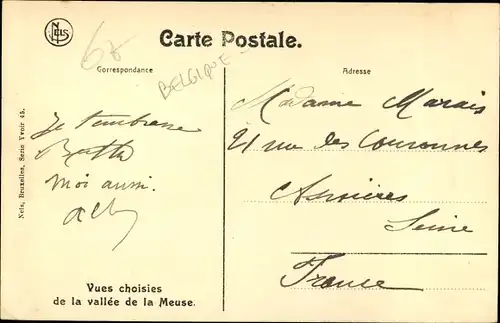 NELS
Carte Postale.
67
BELGIQUE
Correspondance
Adresse
Je t'embrasse
Berthe
Moi aussi
Madame Marais
21 rue des Couronnes
Asnières
Seine
France
Nels, Bruxelles, Serie Yvoir 45.
Vues choisies
de la vallée de la Meuse.